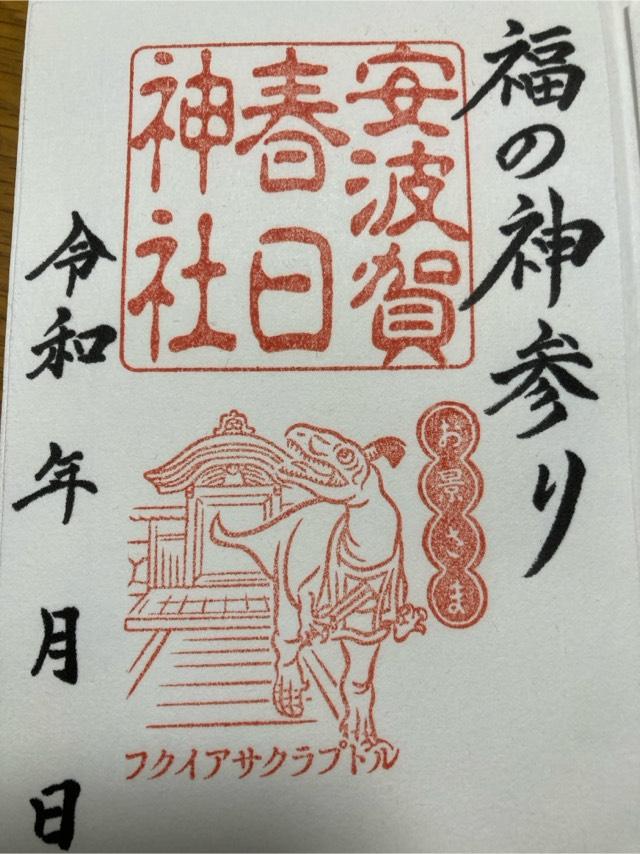 福の神参り
安波賀
春日
神社
お景さま
フクイアサクラプトル
令和 年 月 日